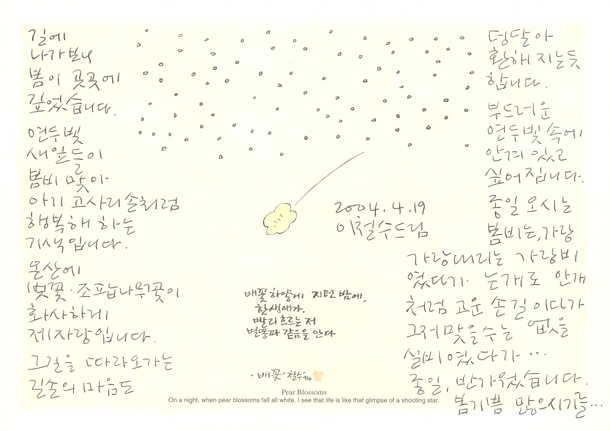 길에
나가보니
봄이 곳곳에
깊었습니다.
연두빛
새잎들이
봄비 맞아
아기 고사리손처럼
행복해 하는
기색입니다.
온산에
벚꽃·조팝나무꽃이
화사하게
제자랑입니다.
그길을 따라오가는
길손의 마음도
덩달아
환해지는듯
합니다.
부드러운
연두빛 속에
안겨 있고
싶어집니다.
종일 오시는
봄비는, 가랑
가랑내리는 가랑비
였다가. 는개로 안개
처럼 고운 손길이다가
그저맞을수는 없을
실비였다가...
종일, 반가웠습니다.
봄기쁨 많으시기를...
2004.4.19
이철수드림
배꽃하얗게 지던 밤에.
한생애가.
빨리 흐르는 저
별똥과 같음을 안다
·배꽃· 철수
Pear Blossoms
On a night, when pear blossoms fall all white, I see that life is like that glimpse of a shooting star.